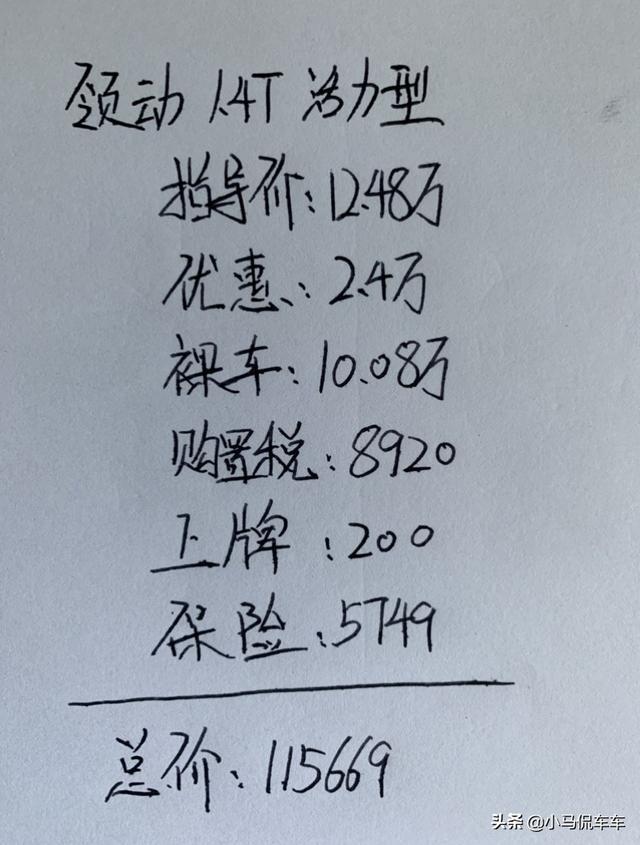 领动 1.4T 活力型
指导价:12.48万
优惠:2.4万
裸车:10.08万
购置税:8920
上牌:200
保险:5749
总价:115669
头条 @小马侃车车